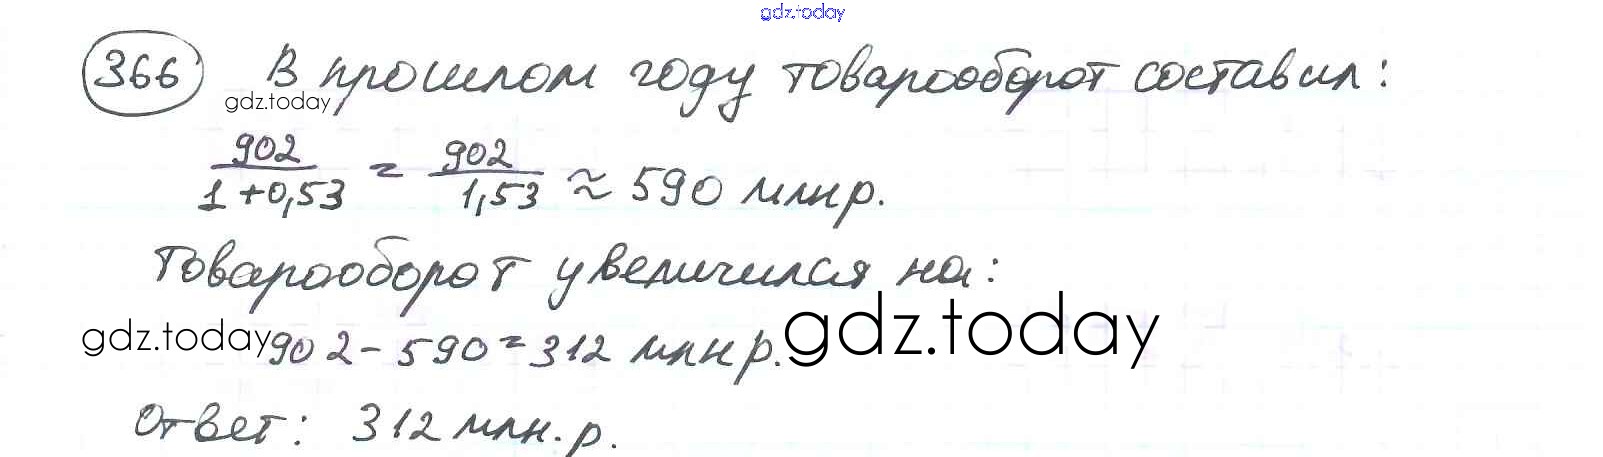 gdz.today
366 В прошлом году товарооборот составил:
gdz.today
902/(1+0,53) = 902/1,53 ≈ 590 млн р.
Товарооборот увеличился на:
gdz.today 902 - 590 = 312 млн р. gdz.today
Ответ: 312 млн. р.